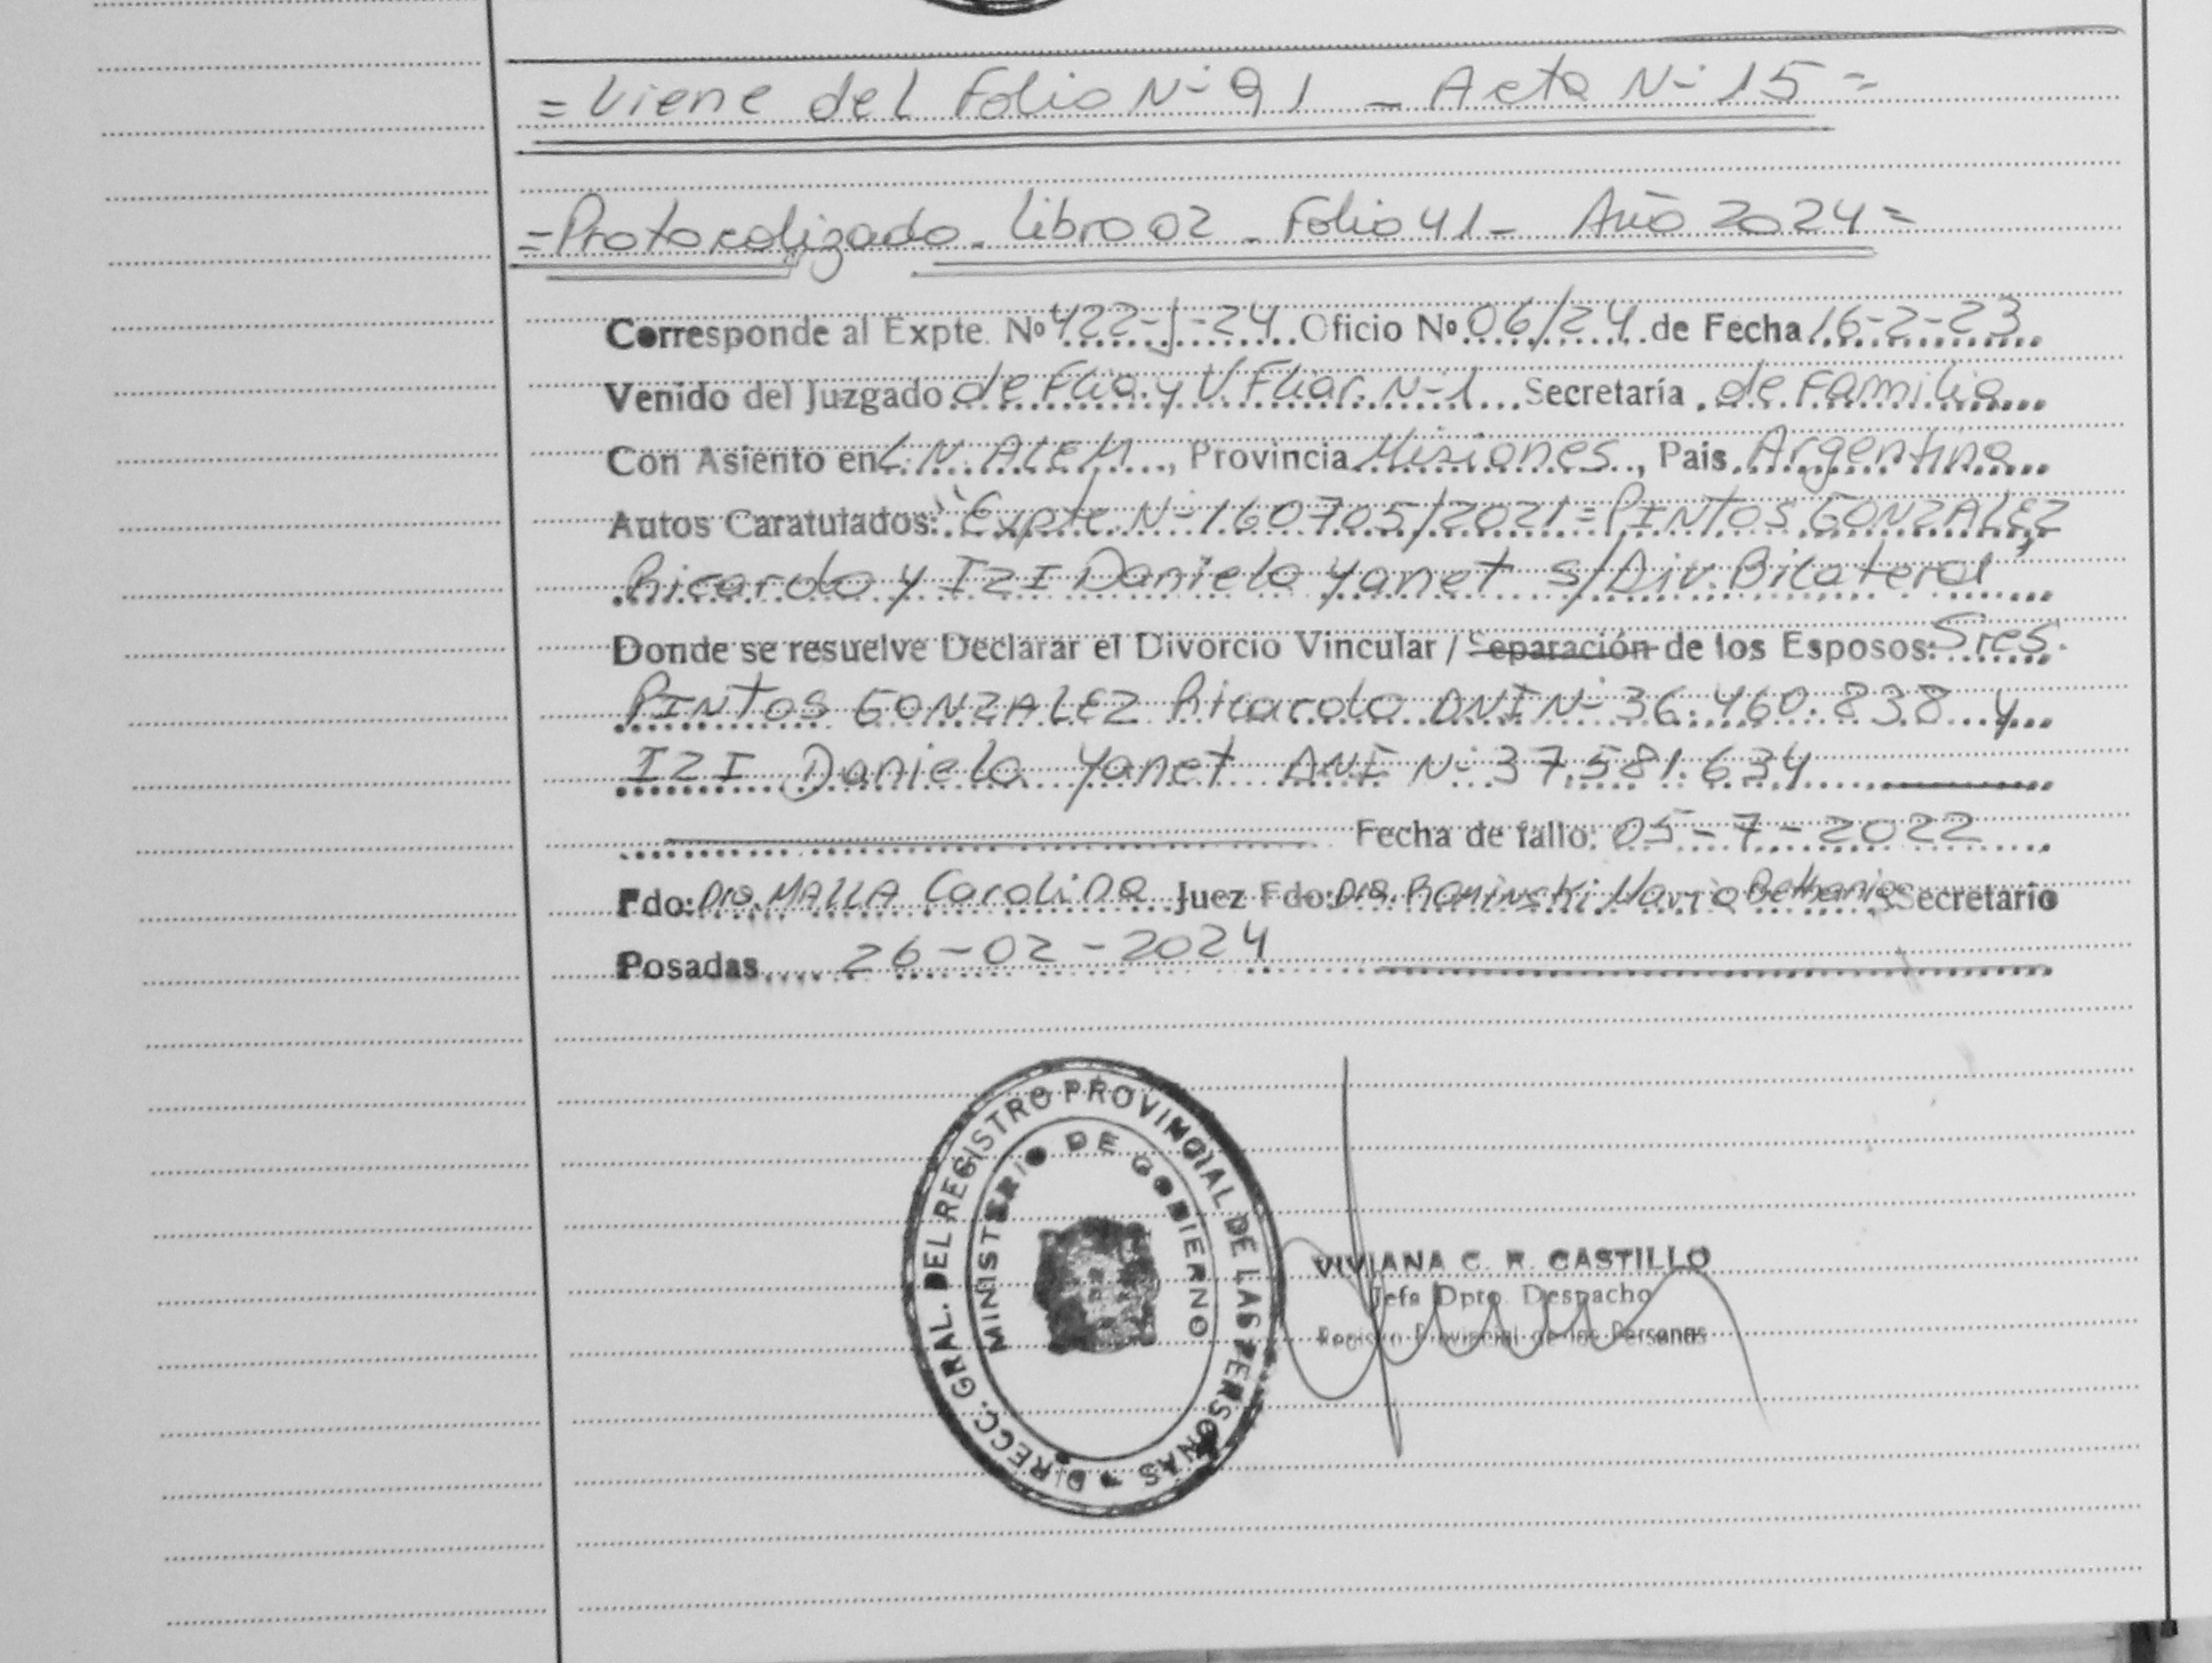 = Viene del Folio Nº 91 - Acta Nº 15 =
= Protocolizado - Libro 02 - Folio 41 - Año 2024 =
Corresponde al Expte. Nº 422-J-24 Oficio Nº 06/24 de Fecha 16-2-23
Venido del Juzgado de Flia. y V. Fliar. Nº 1 Secretaría de Familia
Con Asiento en L.N. ALEM, Provincia Misiones, Pais Argentina
Autos Caratulados: "Expte. Nº 160705/2021 = PINTOS GONZALEZ,
Ricardo y IZI Daniela Yanet s/Div. Bilateral"
Donde se resuelve Declarar el Divorcio Vincular / Separación de los Esposos: Sres.
PINTOS GONZALEZ Ricardo DNI Nº 36.460.838 y
IZI Daniela Yanet DNI Nº 37.581.634
Fecha de fallo: 05-7-2022
Fdo: Dra. MALLA Carolina Juez Fdo: Dra. Maria Bethania Secretario
Posadas 26-02-2024
DIRECC. GRAL. DEL REGISTRO PROVINCIAL DE LAS PERSONAS
MINISTERIO DE GOBIERNO
VIVIANA C. R. CASTILLO
Jefa Dpto. Despacho
Registro Provincial de las Personas